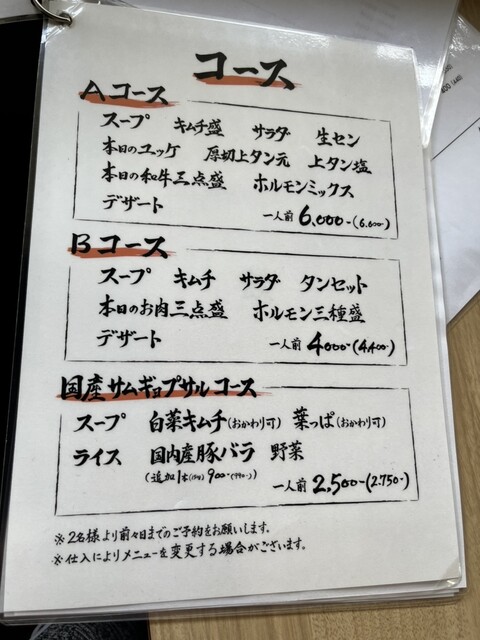 コース
Aコース
スープ キムチ盛 サラダ 生セン
本日のユッケ 厚切上タン元 上タン塩
本日の和牛三点盛 ホルモンミックス
デザート 一人前 6,000-(6.600-)
Bコース
スープ キムチ サラダ タンセット
本日のお肉三点盛 ホルモン三種盛
デザート 一人前 4000-(4,400-)
国産サムギョプサルコース
スープ 白菜キムチ(おかわり可) 葉っぱ(おかわり可)
ライス 国内産豚バラ 野菜
(追加1本 900-(990-)
一人前 2,500-(2.750-)
※2名様より前々日までのご予約をお願いします。
※仕入によりメニューを変更する場合がございます。